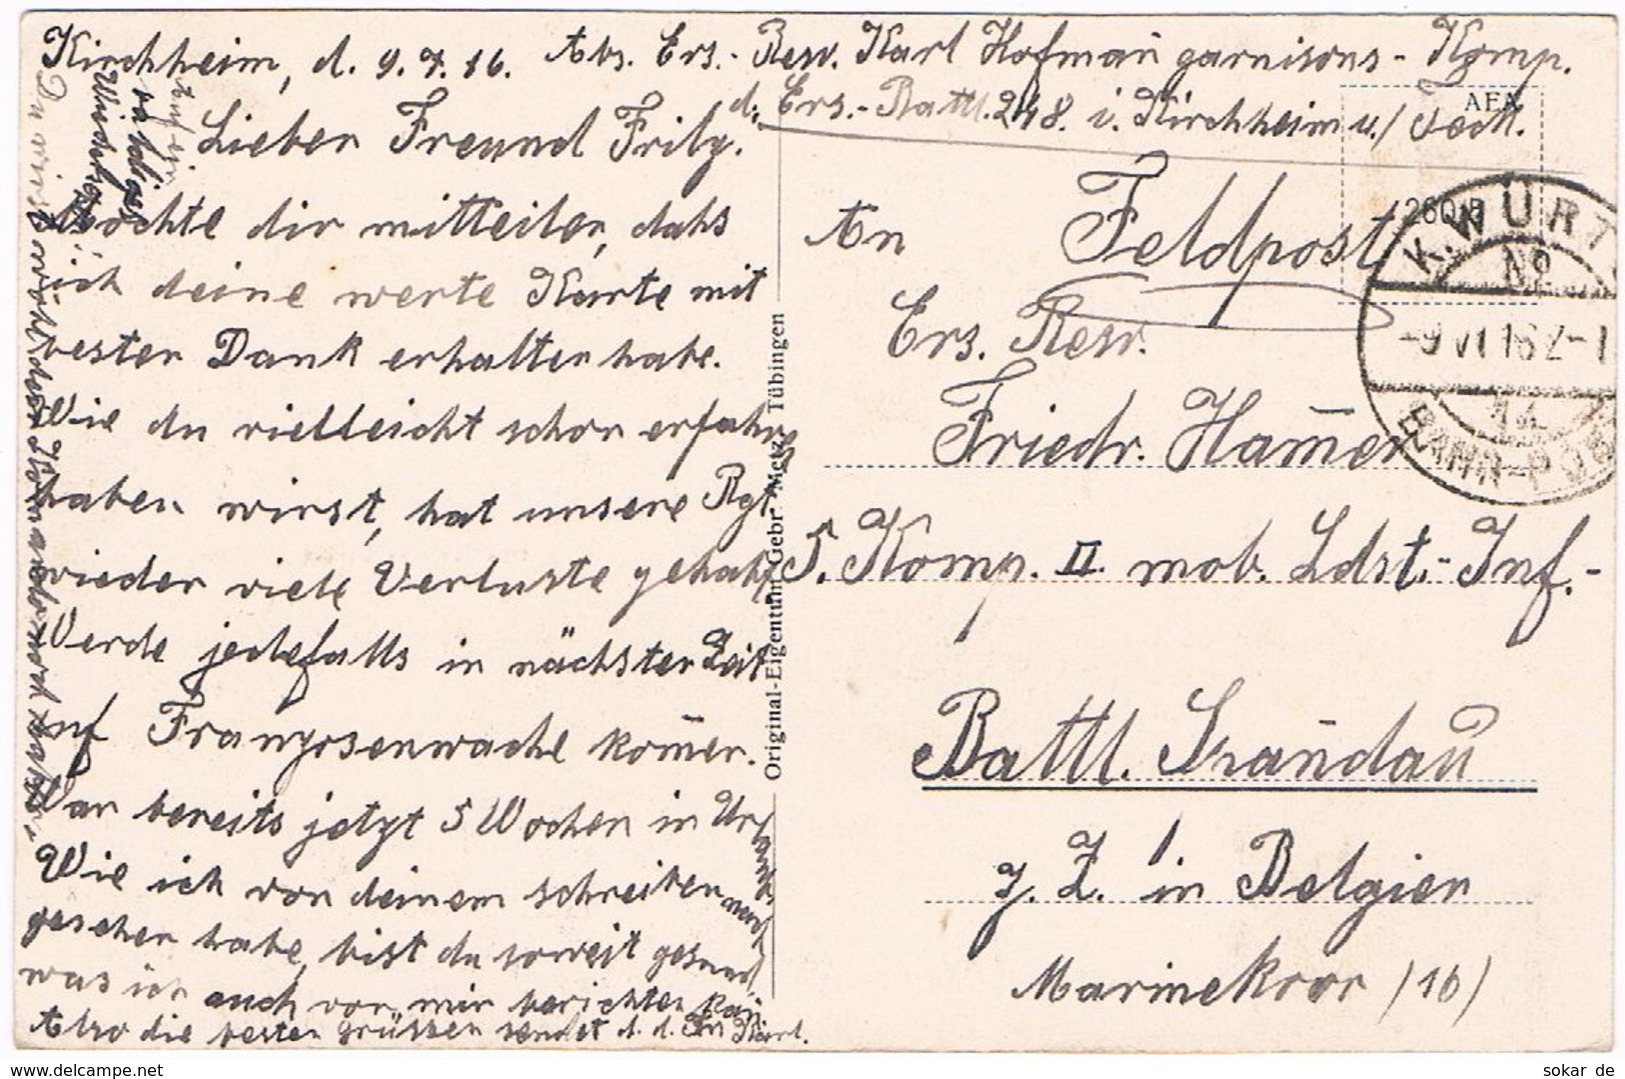 Kirchheim, d. 9. 7. 16. Abs. Ers.- Resv. Karl Hofman̄ garnisons - Komp.
d. Ers.- Battl. 248. i. Kirchheim u./ Teck.
Lieber Freund Fritz.
Möchte dir mitteilen, dahs
ich deine werte Karte mit
bester Dank erhalten habe.
Wie du vielleicht schon erfahren
haben wirst, hat unsere Rgt.
wieder viele Verluste gehabt
Werde jedefalls in nächster Zeit
auf Franzosenwache kom̄en.
War bereits jetzt 5 Wochen in Urlaub.
Wie ich von deinem schreiben
gesehen habe, bist du soweit gesund,
was ich auch von mir berichten kan̄
Also die besten grüssen sendet d. d. Fr Karl.
Auf ein
baldiges
Wiedersehn
Du wirst
Original-Eigentum Gebr. Metz, Tübingen
AEA
260
An Feldpost
Ers. Resv.
Friedr. Ham̄er
5. Komp. II. mob. Ldst.- Inf.-
Battl.
z. Z. in Belgien
Marinekoor /16/
K. WÜRTT.
No
-9 VII 16 2-1
BAHN-POST
sokar de